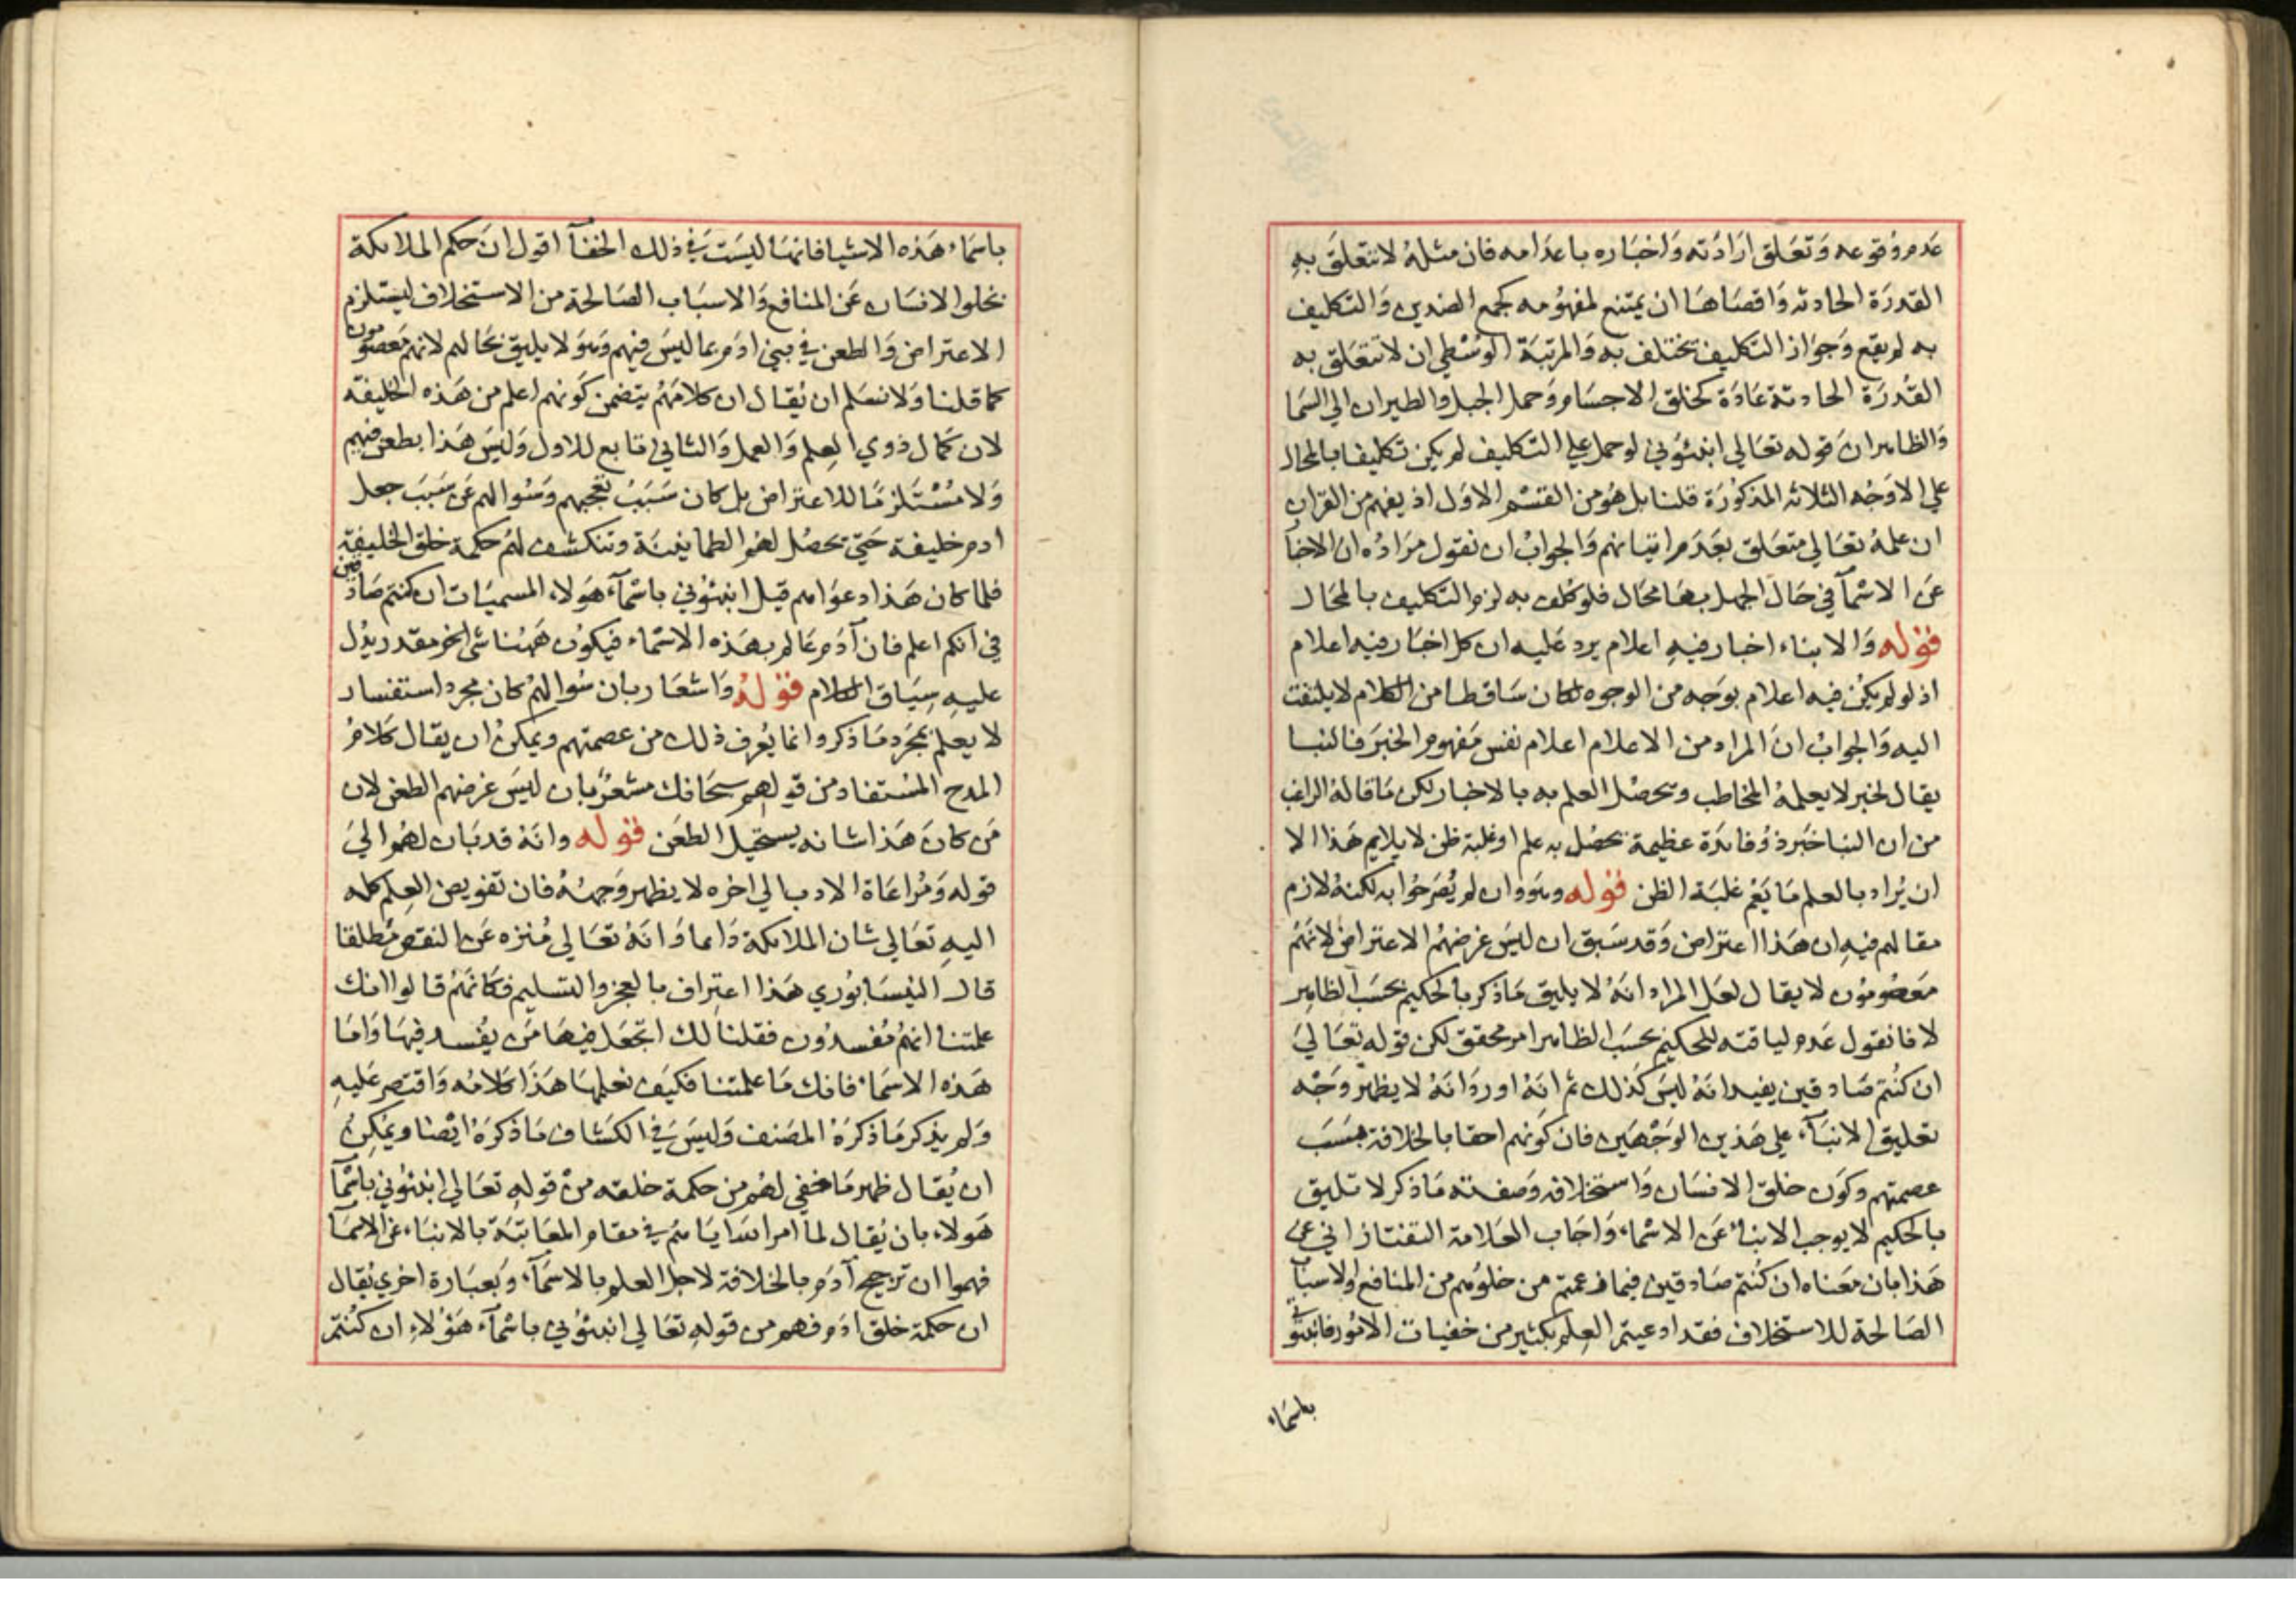 عدم وقوعه وتعلق ارادته واخباره باعدامه فان مثله لا تتعلق به
القدرة الحادثه واقصاها ان يمتنع لمفهومه كجمع الضدين والتكليف
به لم يقع وجواز التكليف يختلف به والمرتبة الوسطي ان لا تتعلق به
القدرة الحادثة عادة كخلق الاجسام وحمل الجبل والطيران الي السما
والظاهر ان قوله تعالي انبئوني لو حمل علي التكليف لم يكن تكليفا بالمحال
علي الاوجه الثلاثه المذكورة قلنا بل هو من القسم الاول اذ يفهم من القران
ان علمه تعالي متعلق بعدم اتيانهم والجواب ان نقول مراده ان الاخبا
عن الاسمآ في حال الجهل بها محال فلو كلف به لزم التكليف بالمحال
قوله والانباء اخبار فيه اعلام يرد عليه ان كل اخبار فيه اعلام
اذ لو لم يكن فيه اعلام بوجه من الوجوه لكان ساقطا من الكلام لا يلتفت
اليه والجواب ان المراد من الاعلام اعلام نفس مفهوم الخبر فالنبا
يقال لخبر لا يعلمه المخاطب ويحصل العلم به بالاخبار لكن ما قاله الراغب
من ان النبا خبر ذو فائدة عظيمة يحصل به علم او غلبة ظن لا يلايم هذا الا
ان يراد بالعلم ما يعم غلبة الظن قوله وهو وان لم يصرحوا به لكنه لازم
مقالهم فيه ان هذا اعتراض وقد سبق ان ليس غرضهم الاعتراض لانهم
معصومون لا يقال لعل المراد انه لا يليق ما ذكر بالحكيم بحسب الظاهر
لانا نقول عدم لياقته للحكيم بحسب الظاهر امر محقق لكن قوله تعالي
ان كنتم صادقين يفيد انه ليس كذلك ثم انه اورد انه لا يظهر وجه
تعليق الانبآء علي هذين الوجهين فان كونهم احقا بالخلافة بسبب
عصمتهم وكون خلق الانسان واستخلافه وصفته ما ذكر لا تليق
بالحكيم لا يوجب الانباء عن الاسماء واجاب العلامة التفتازاني عن
هذا بان معناه ان كنتم صادقين فيما زعمتم من خلوهم من المنافع والاسباب
الصالحة للاستخلاف فقد ادعيتم العلم بكثير من خفيات الامور فانبئوني
باسماء
باسماء هذه الاشيا فانها ليست في ذلك الخفآ اقول ان حكم الملائكة
بخلو الانسان عن المنافع والاسباب الصالحة من الاستخلاف ليستلزم
الاعتراض والطعن في بني ادم بما ليس فيهم وهو لا يليق بحالهم لانهم معصومون
كما قلنا ولا نسلم ان يقال ان كلامهم يتضمن كونهم اعلم من هذه الخليفة
لان كمال ذوي العلم والعمل والثاني تابع للاول وليس هذا بطعن فيهم
ولا مستلزما للاعتراض بل كان سبب تعجبهم وسوالهم عن سبب جعل
ادم خليفة حتي تحصل لهم الطمانينة وتنكشف لهم حكمة خلق الخليفة
فلما كان هذا دعواهم قيل انبئوني باسمآء هولاء المسميات ان كنتم صادقين
في انكم اعلم فان آدم عالم بهذه الاسماء فيكون ههنا شي اخر مقدر يدل
عليه سياق الكلام قوله واشعار بان سوالهم كان مجرد استفسار
لا يعلم بمجرد ما ذكر وانما يعرف ذلك من عصمتهم ويمكن ان يقال كلام
المدح المستفاد من قولهم سبحانك مشعر بان ليس غرضهم الطعن لان
من كان هذا شانه يستحيل الطعن قوله وانه قد بان لهم الي
قوله ومراعاة الادب الي اخره لا يظهر وجهه فان تفويض العلم كله
اليه تعالي شان الملائكة دايما وانه تعالي منزه عن النقص مطلقا
قال النيسابوري هذا اعتراف بالعجز والتسليم فكانهم قالوا انك
علمتنا انهم مفسدون فقلنا لك اتجعل فيها من يفسد فيها واما
هذه الاسماء فانك ما علمتنا فكيف نعلمها هذا كلامه واقتصر عليه
ولم يذكر ما ذكره المصنف وليس في الكشاف ما ذكره ايضا ويمكن
ان يقال ظهر ما خفي لهم من حكمة خلقه من قوله تعالي انبئوني باسمآ
هولاء بان يقال لما امر الله اياهم في مقام المعاتبة بالانباء عن الاسمآ
فهموا ان ترجيح آدم بالخلافة لاجل العلم بالاسمآء وبعبارة اخري يقال
ان حكمة خلق ادم فهم من قوله تعالي انبئوني باسمآء هؤلاء ان كنتم